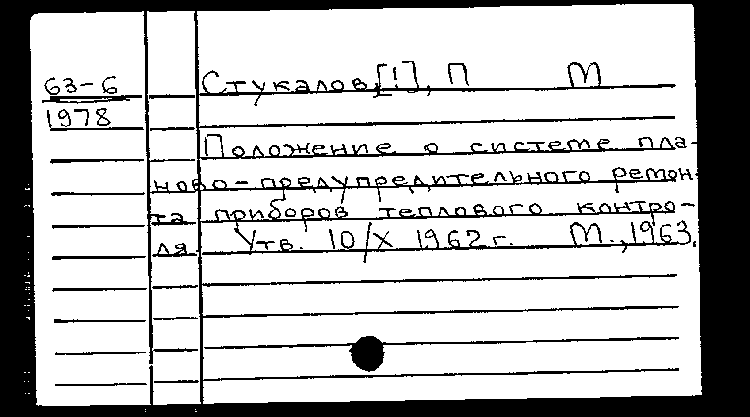 63-6
1978
Стукалов,[!], П М
Положение о системе пла-
ново-предупредительного ремон-
та приборов теплового контро-
ля. Утв. 10/X 1962 г. М., 1963.